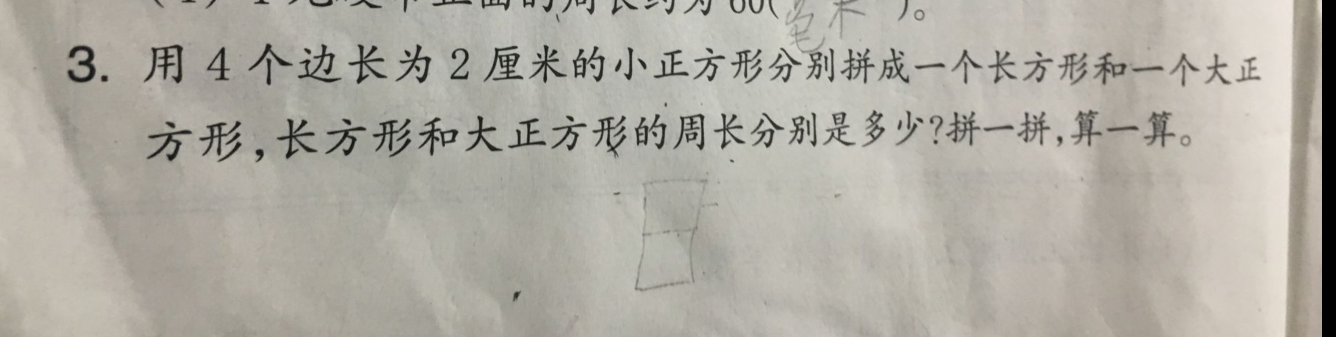 的周长约为60(毫米)。
3. 用4个边长为2厘米的小正方形分别拼成一个长方形和一个大正
方形,长方形和大正方形的周长分别是多少?拼一拼,算一算。